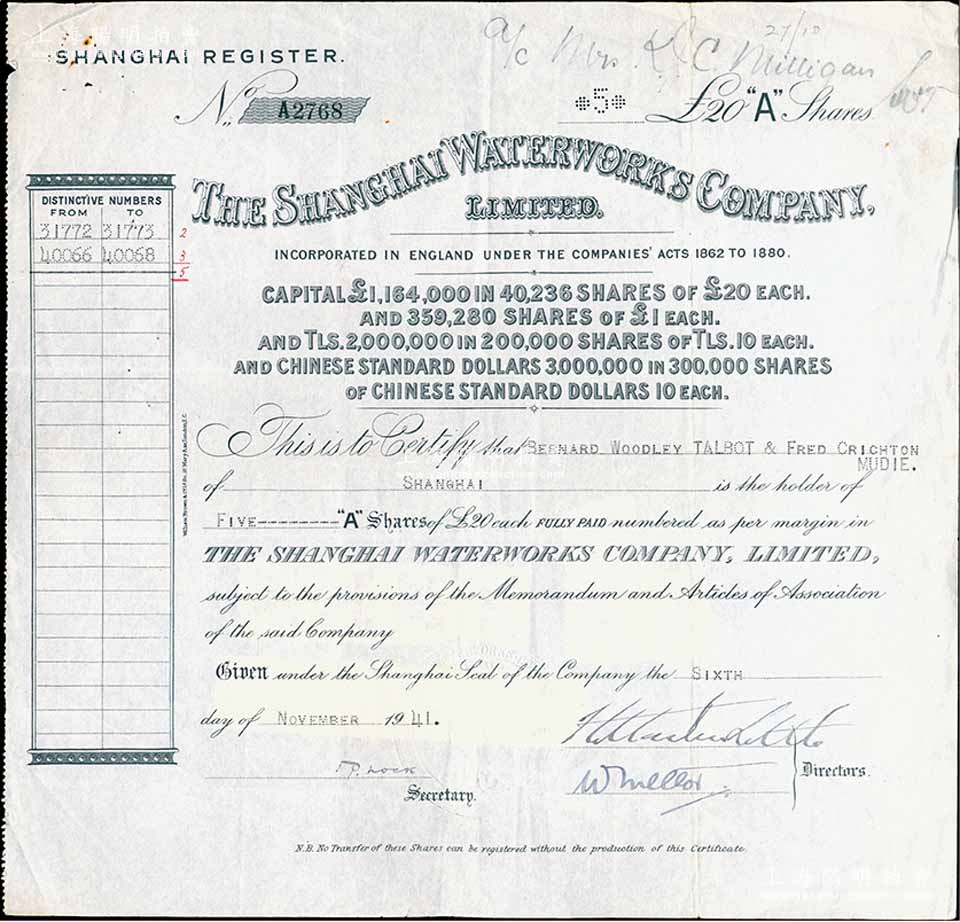 SHANGHAI REGISTER.
27/10
a/c Mrs. K. C. Milligan
No. A2768
*5* £20 "A" Shares
THE SHANGHAI WATERWORKS COMPANY,
LIMITED.
INCORPORATED IN ENGLAND UNDER THE COMPANIES' ACTS 1862 TO 1880.
CAPITAL £1,164,000 IN 40,236 SHARES OF £20 EACH.
AND 359,280 SHARES OF £1 EACH.
AND TLS. 2,000,000 IN 200,000 SHARES OF TLS. 10 EACH.
AND CHINESE STANDARD DOLLARS 3,000,000 IN 300,000 SHARES
OF CHINESE STANDARD DOLLARS 10 EACH.
DISTINCTIVE NUMBERS
FROM TO
31772 31773 2
40066 40068 3
5
This is to Certify that BERNARD WOODLEY TALBOT & FRED CRICHTON
MUDIE.
of SHANGHAI is the holder of
FIVE-------- "A" Shares of £20 each FULLY PAID numbered as per margin in
THE SHANGHAI WATERWORKS COMPANY, LIMITED,
subject to the provisions of the Memorandum and Articles of Association
of the said Company
Given under the Shanghai Seal of the Company the SIXTH
day of NOVEMBER 1941.
W Mellor
Directors.
F.P. Lock
Secretary.
N.B. No Transfer of these Shares can be registered without the production of this Certificate.